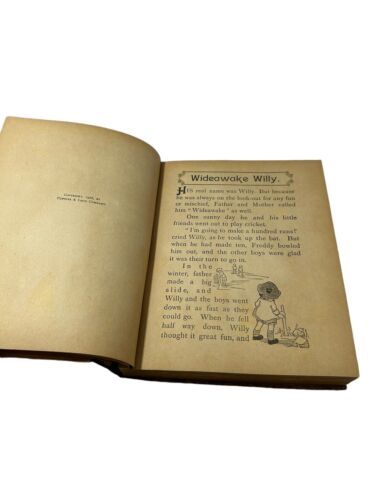 Copyright, 1906, by
Cupples & Leon Company
Wideawake Willy.
HIS real name was Willy. But because
he was always on the look-out for any fun
or mischief, Father and Mother called
him "Wideawake" as well.
One sunny day he and his little
friends went out to play cricket.
"I'm going to make a hundred runs!"
cried Willy, as he took up the bat. But
when he had made ten, Freddy bowled
him out, and the other boys were glad
it was their turn to go in.
In the
winter, father
made a big
slide, and
Willy and the boys went
down it as fast as they
could go. When he fell
half way down, Willy
thought it great fun, and